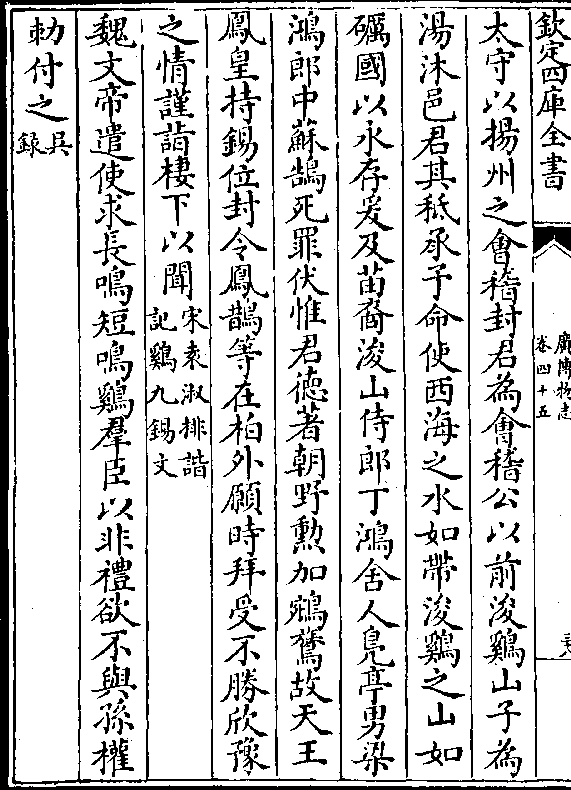 欽定四庫全書
廣博物志
卷四十五
太守以揚州之會稽封君為會稽公以前浚鷄山子為
湯沐邑君其祗承予命使西海之水如帶浚鷄之山如
礪國以永存爰及苗裔浚山侍郎丁鴻舍人鳧亭男梁
鴻郎中蘇鵠死罪伏惟君德著朝野勲加鵷鷺故天王
鳳皇持錫位封令鳳鵲等在柏外願時拜受不勝欣豫
之情謹詣棲下以聞宋袁淑排諧
記鷄九錫文
魏文帝遣使求長鳴短鳴鷄羣臣以非禮欲不與孫權
勅付之吳
録